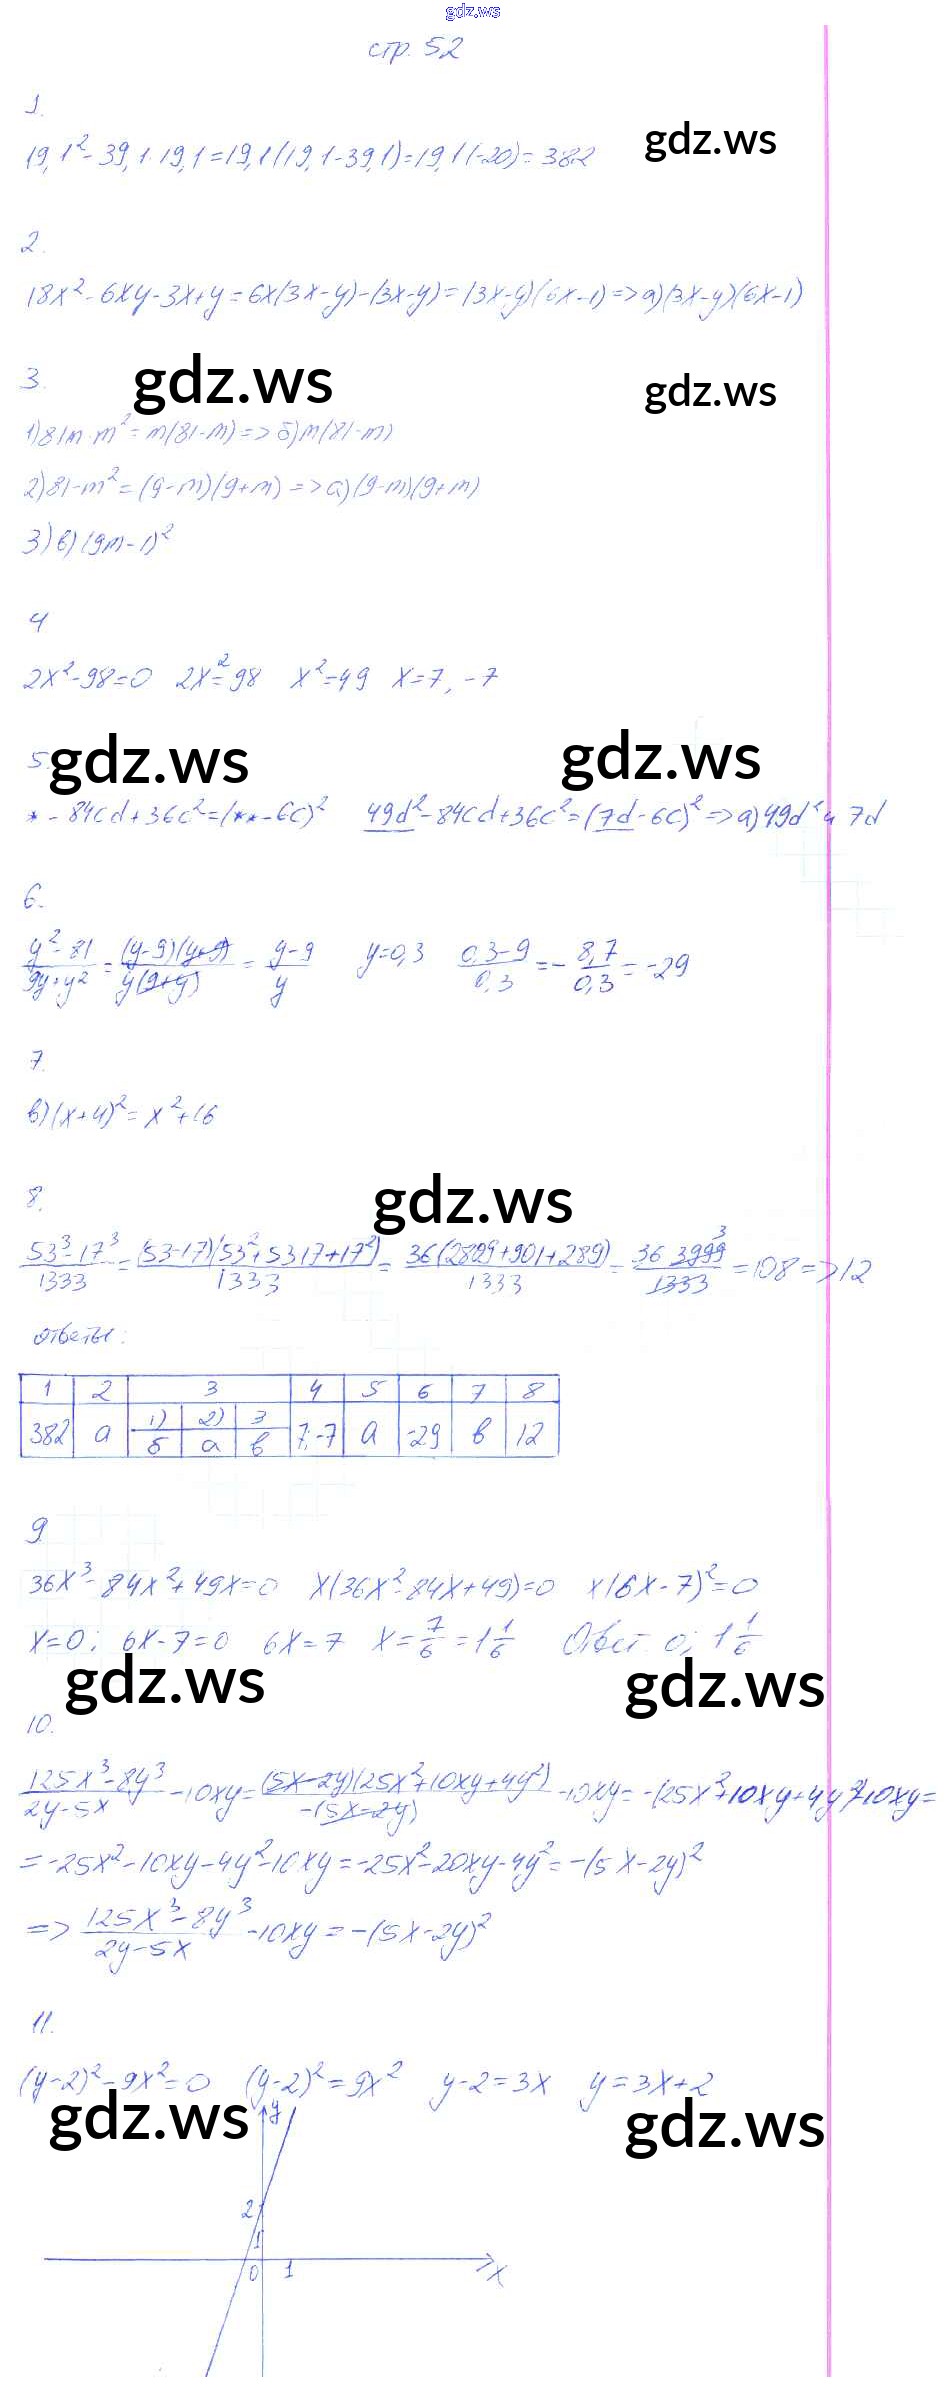 gdz.ws
стр. 52
1.
19,1² - 39,1·19,1 = 19,1(19,1-39,1) = 19,1(-20) = 382
gdz.ws
2.
18x² - 6xy - 3x + y = 6x(3x-y) - (3x-y) = (3x-y)(6x-1) => а)(3x-y)(6x-1)
3.
gdz.ws
gdz.ws
1) 81m·m² = m(81-m) => б) m(81-m)
2) 81-m² = (9-m)(9+m) => а) (9-m)(9+m)
3) в) (9m-1)²
4
2x²-98=0 2x²=98 x²=49 x=7, -7
5.
gdz.ws
gdz.ws
* - 84cd + 36c² = (** - 6c)² 49d² - 84cd + 36c² = (7d - 6c)² => а) 49d² и 7d
6.
y²-81/9y+y² = (y-9)(y+9)/y(9+y) = y-9/y y=0,3 0,3-9/0,3 = - 8,7/0,3 = -29
7.
в) (x+4)² = x²+16
8.
gdz.ws
53³-17³/1333 = (53-17)(53²+53·17+17²)/1333 = 36(2809+901+289)/1333 = 36·3999³/1333 = 108 => 12
ответы:
1 2 3 4 5 6 7 8
382 а 1) 2) 3 7;-7 а -29 в 12
б а в
9
36x³ - 84x² + 49x = 0 x(36x²-84x+49)=0 x(6x-7)²=0
x=0; 6x-7=0 6x=7 x=7/6=1 1/6 Ответ: 0; 1 1/6
gdz.ws
gdz.ws
10.
125x³-8y³/2y-5x - 10xy = (5x-2y)(25x²+10xy+4y²)/-(5x-2y) - 10xy = -(25x²+10xy+4y²)-10xy =
= -25x² - 10xy - 4y² - 10xy = -25x² - 20xy - 4y² = -(5x-2y)²
=> 125x³-8y³/2y-5x - 10xy = -(5x-2y)²
11.
(y-2)² - 9x² = 0 (y-2)² = 9x² y-2=3x y=3x+2
gdz.ws
gdz.ws
y
2
1
0 1 x